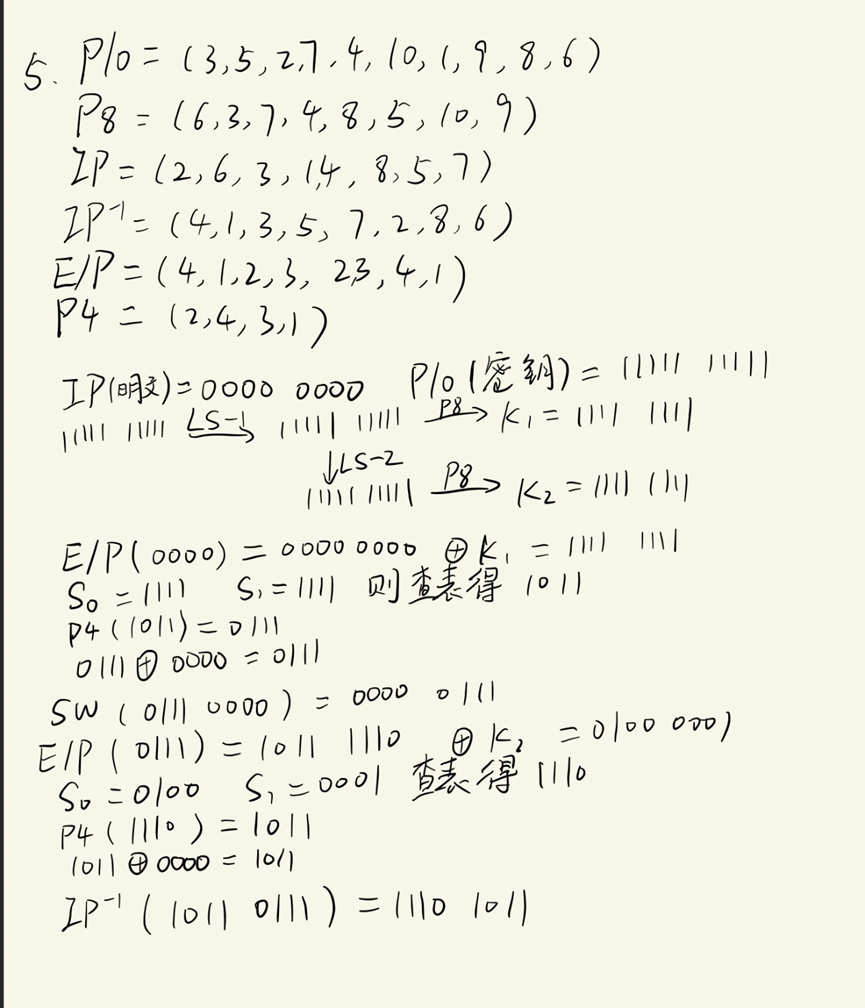 5. P10 = (3,5,2,7,4,10,1,9,8,6)
P8 = (6,3,7,4,8,5,10,9)
IP = (2,6,3,1,4,8,5,7)
IP⁻¹ = (4,1,3,5,7,2,8,6)
E/P = (4,1,2,3, 2,3,4,1)
P4 = (2,4,3,1)
IP(明文) = 0000 0000 P10(密钥) = 11111 11111
11111 11111 LS-1→ 11111 11111 P8→ K₁ = 1111 1111
↓LS-2
11111 11111 P8→ K₂ = 1111 1111
E/P(0000) = 0000 0000 ⊕ K₁ = 1111 1111
S₀ = 1111 S₁ = 1111 则查表得 1011
P4(1011) = 0111
0111 ⊕ 0000 = 0111
SW (0111 0000) = 0000 0111
E/P(0111) = 1011 1110 ⊕ K₂ = 0100 0001
S₀ = 0100 S₁ = 0001 查表得 1110
P4(1110) = 1011
1011 ⊕ 0000 = 1011
IP⁻¹(1011 0111) = 1110 1011